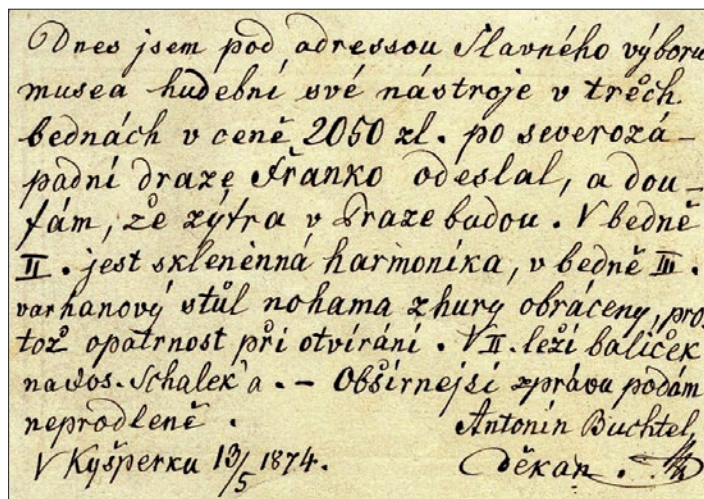 Dnes jsem pod adressou Slavného výboru
musea hudební své nástroje v třech
bednách v ceně 2050 zl. po severozá-
padní draze Fřanko odeslal, a dou-
fám, že zýtra v Praze budou. V bedně
II. jest sklenénná harmonika, v bedně III.
varhanový stůl nohama zhury obráceny, pro-
tož opatrnost při otvírání. V II. leží balíček
na Jos. Schalek'a. – Obšírnejší zprávu podám
neprodleně.
Antonín Buchtel,
V Kyšperku 13/5 1874.
děkan.